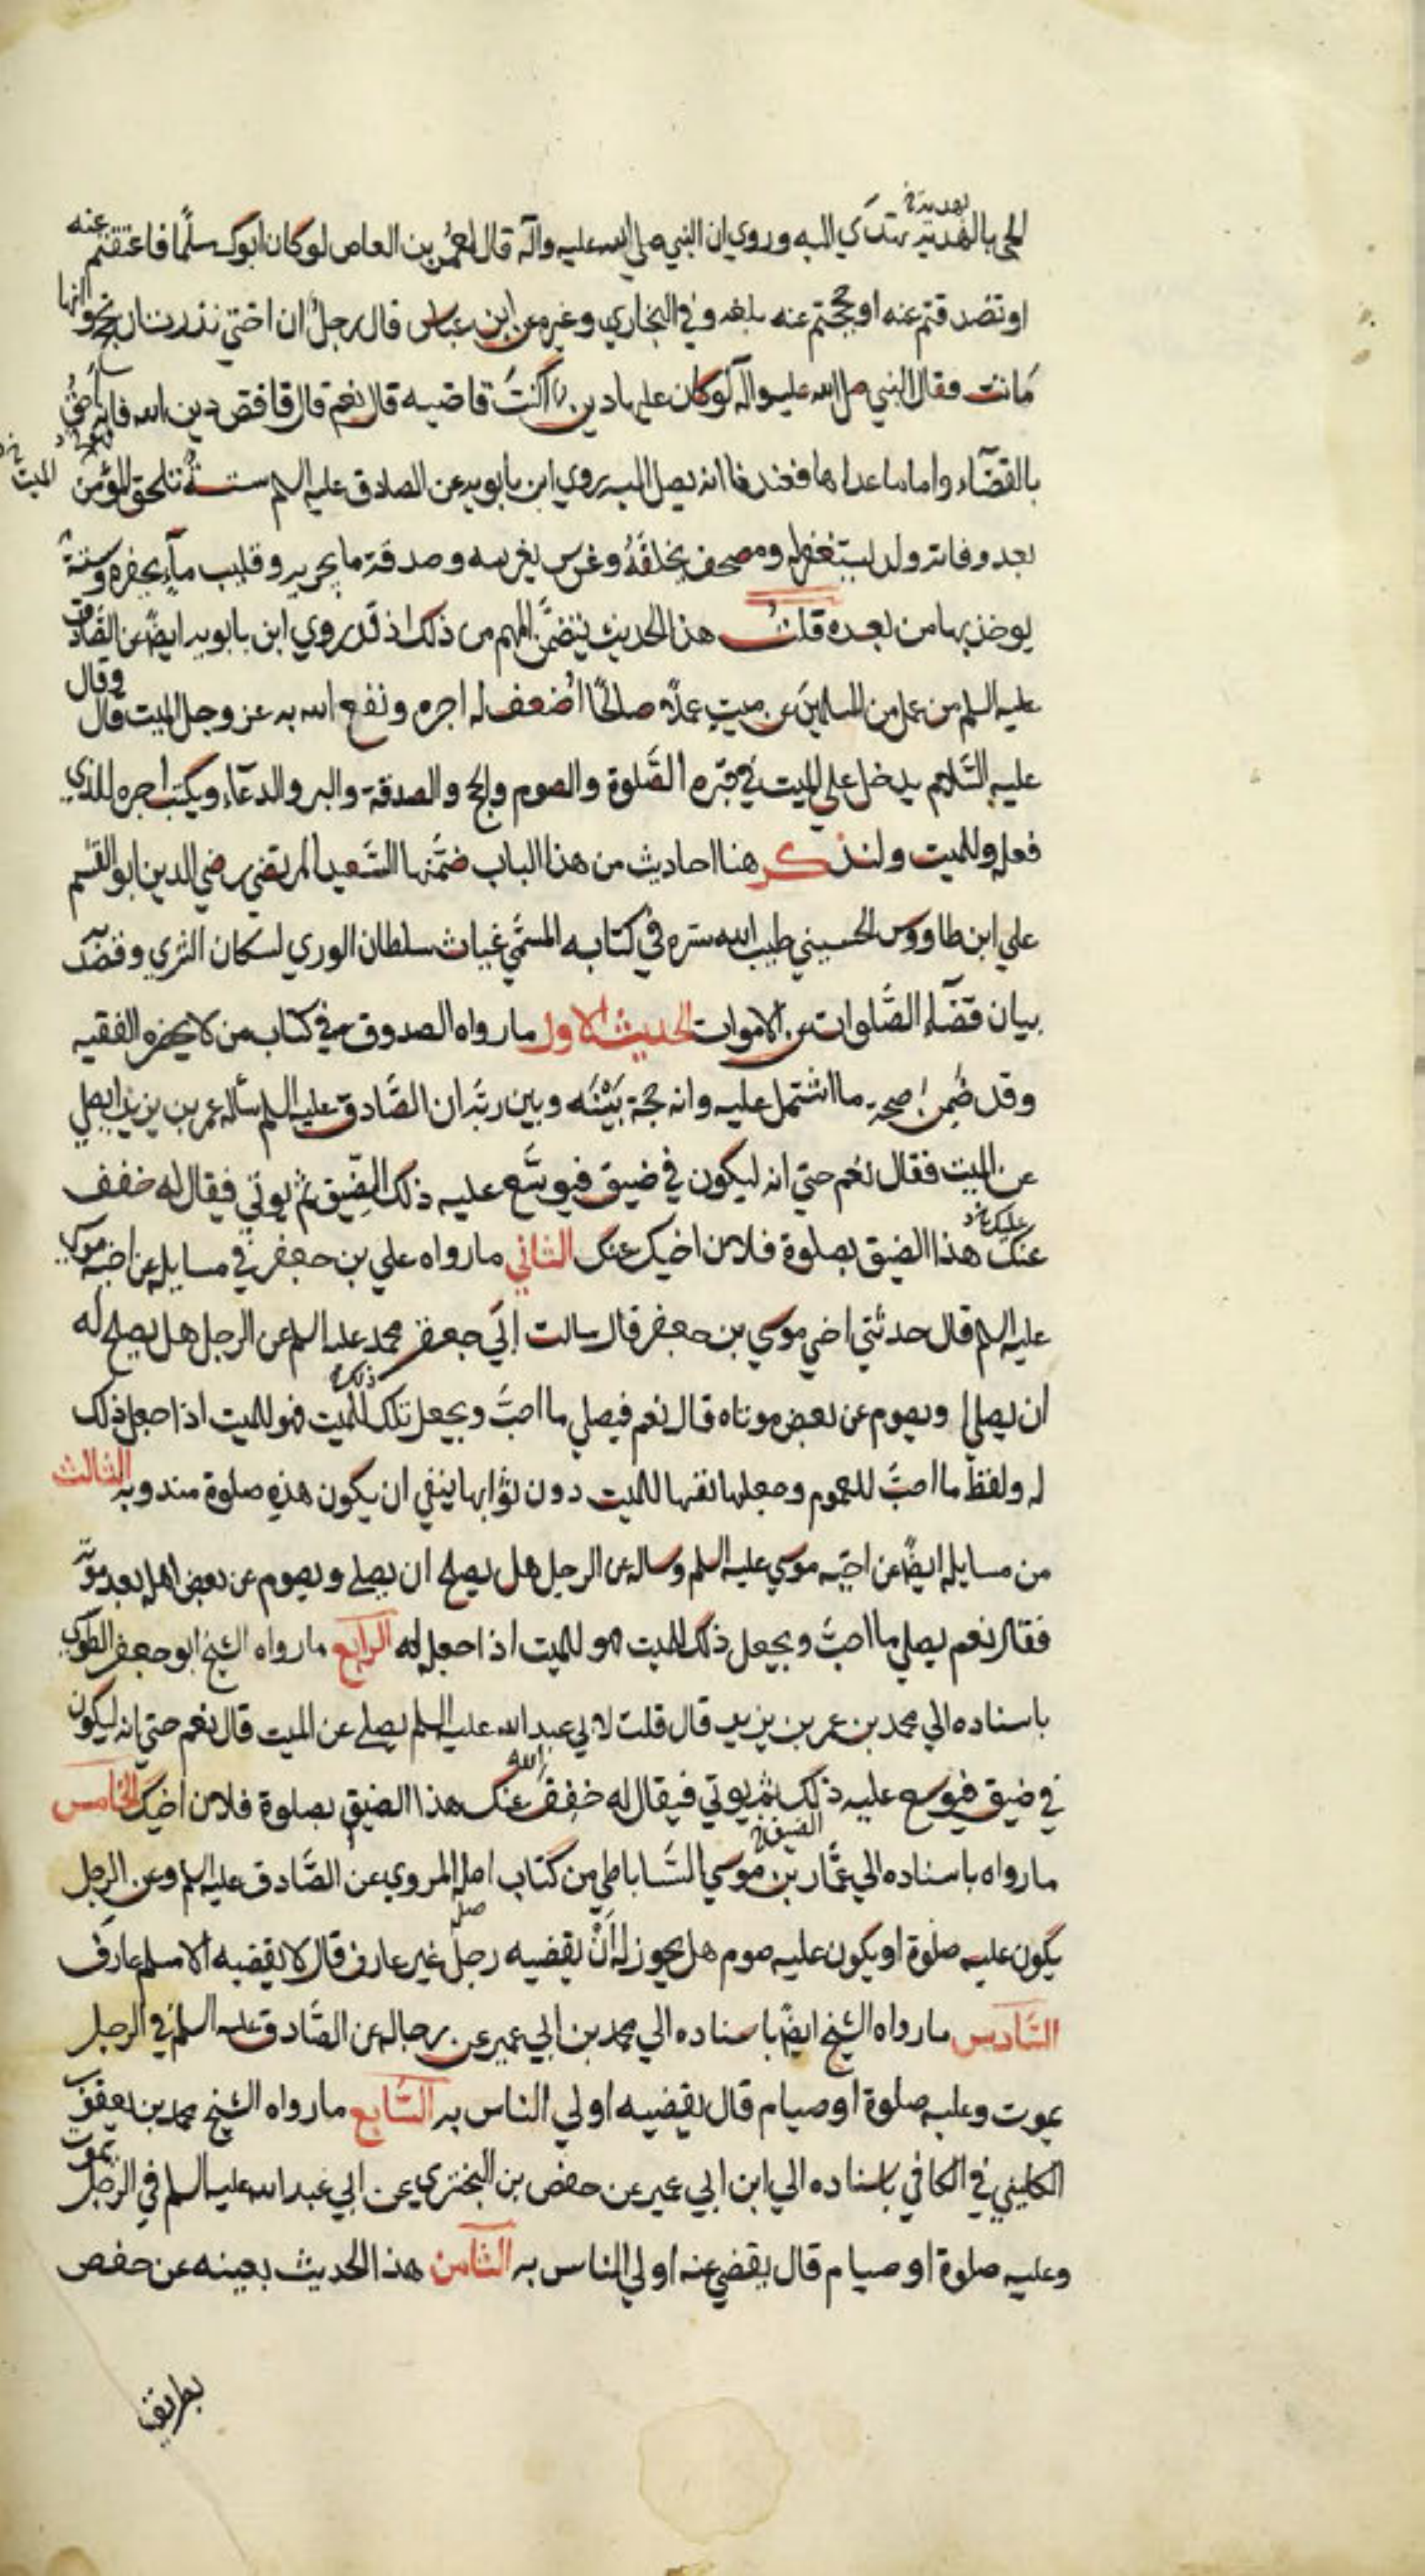 الحي بالهدية بهدية تهدى اليه وروي ان النبي صلى الله عليه واله قال لعمرو بن العاص لو كان ابوك مسلما فاعتقتم عنه
او تصدقتم عنه او حججتم عنه بلغه وفي البخاري وغيره عن ابن عباس قال رجل ان اختي نذرت ان تحج وانها
ماتت فقال النبي صلى الله عليه واله لو كان عليها دين اكنت قاضيه قال نعم قال فاقض دين الله فانه احق
بالقضاء واما ما عداها فعندنا انه يصل اليه روي ابن بابويه عن الصادق عليه السلم ستة تلحق المؤمن
الميت
بعد وفاته ولد يستغفر له ومصحف يخلفه وغرس يغرسه وصدقة ما يجريه وقليب ماء يحفره وسنة
يوخذ بها من بعده قلت هذا الحديث يتضمن المهم من ذلك اذ قد روي ابن بابويه ايضا عن الصادق
عليه السلم من عمل من المسلمين عن ميت عملا صالحا اضعف له اجره ونفع الله به عز وجل الميت قال وقال
عليه السلام يدخل على الميت في قبره الصلوة والصوم والحج والصدقة والبر والدعاء ويكتب اجره للذي
فعله وللميت ولنذكر هنا احاديث من هذا الباب ضمنها السعيد المرتضي رضي الدين ابو القسم
علي ابن طاووس الحسيني طيب الله سره في كتابه المسمي غياث سلطان الوري لسكان الثري وقصد
بيان قضاء الصلوات عن الاموات الحديث الاول ما رواه الصدوق في كتاب من لا يحضره الفقيه
وقد ضمن صحة ما اشتمل عليه وانه حجة بينه وبين ربه ان الصادق عليه السلم سأله عمر بن يزيد ايصلي
عن الميت فقال نعم حتي انه ليكون في ضيق فيوسع عليه ذلك الضيق ثم يوتي فيقال له خفف
عنك عليك هذا الضيق بصلوة فلان اخيك عنك الثاني ما رواه علي بن جعفر في مسايله عن اخيه موسي
عليه السلم قال حدثني اخي موسي بن جعفر قال سالت ابي جعفر محمد عليه السلم عن الرجل هل يصلح له
ان يصلي او يصوم عن بعض موتاه قال نعم فيصلي ما احب ويجعل تلك ذلك للميت فهو للميت اذا جعل ذلك
له ولفظ ما احب للعموم وجعلها نفسها للميت دون ثوابها ينفي ان يكون هذه صلوة مندوبة الثالث
من مسايله ايضا عن اخيه موسي عليه السلم وساله عن الرجل هل يصلح ان يصلي ويصوم عن بعض اهله بعد موته
فقال نعم يصلي ما احب ويجعل ذلك للميت فهو للميت اذا جعله له الرابع ما رواه الشيخ ابو جعفر الطوسي
باسناده الي محمد بن عمر بن يزيد قال قلت لابي عبد الله عليه السلم يصلي عن الميت قال نعم حتي انه ليكون
في ضيق فيوسع عليه ذلك ثم يوتي فيقال له خفف الله عنك هذا الضيق بصلوة فلان اخيك الخامس
الضيق
ما رواه باسناده الي عمار بن موسي الساباطي من كتاب اصله المروي عن الصادق عليه السلم وعن الرجل
يكون عليه صلوة او يكون عليه صوم هل يجوز له ان يقضيه رجل غير عارف قال لا يقضيه الا مسلم عارف
السادس ما رواه الشيخ ايضا باسناده الي محمد بن ابي عمير عن رجاله عن الصادق عليه السلم في الرجل
يموت وعليه صلوة او صيام قال يقضيه اولي الناس به السابع ما رواه الشيخ محمد بن يعقوب
الكليني في الكافي باسناده الي ابن ابي عمير عن حفص بن البختري عن ابي عبد الله عليه السلم في الرجل يموت
وعليه صلوة او صيام قال يقضي عنه اولي الناس به الثامن هذا الحديث بعينه عن حفص
بطريق